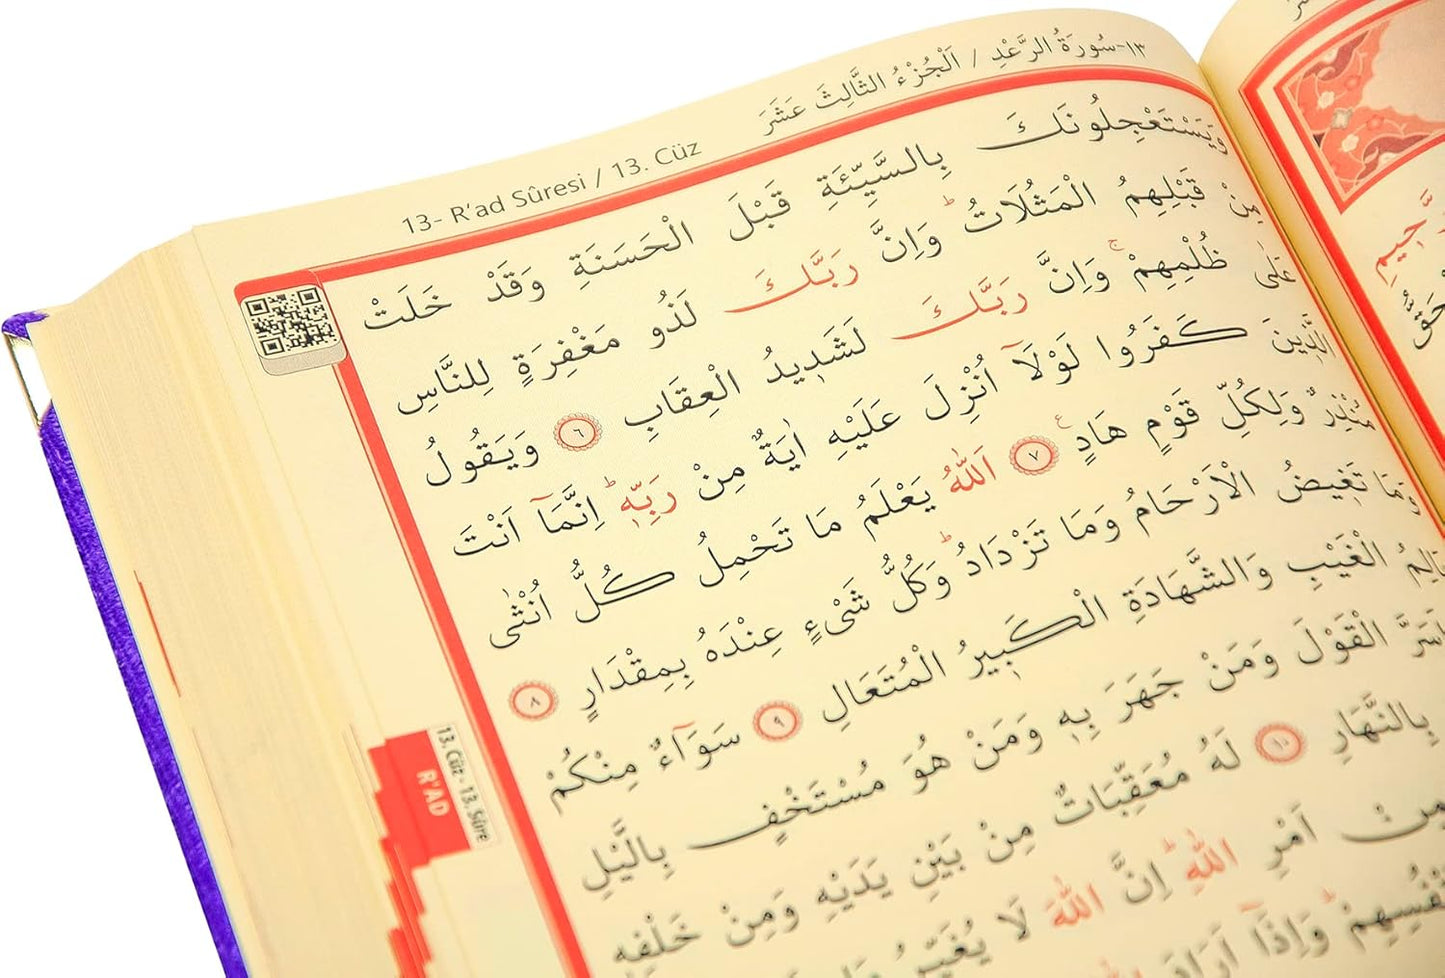 ١٣-سُورَةُ الرَّعْدِ / اَلْجُزْءُ الثَّالِثَ عَشَرَ
13- R'ad Sûresi / 13. Cüz
وَيَسْتَعْجِلُونَكَ بِالسَّيِّئَةِ قَبْلَ الْحَسَنَةِ وَقَدْ خَلَتْ
مِنْ قَبْلِهِمُ الْمَثُلَاتُۜ وَاِنَّ رَبَّكَ لَذُو مَغْفِرَةٍ لِلنَّاسِ
عَلٰى ظُلْمِهِمْۚ وَاِنَّ رَبَّكَ لَشَدٖيدُ الْعِقَابِ ٦ وَيَقُولُ
الَّذٖينَ كَفَرُوا لَوْلَٓا اُنْزِلَ عَلَيْهِ اٰيَةٌ مِنْ رَبِّهٖۜ اِنَّمَٓا اَنْتَ
مُنْذِرٌ وَلِكُلِّ قَوْمٍ هَادٍ ٧ اَللّٰهُ يَعْلَمُ مَا تَحْمِلُ كُلُّ اُنْثٰى
وَمَا تَغٖيضُ الْاَرْحَامُ وَمَا تَزْدَادُۜ وَكُلُّ شَیْءٍ عِنْدَهُ بِمِقْدَارٍ ٨
عَالِمُ الْغَيْبِ وَالشَّهَادَةِ الْكَبٖيرُ الْمُتَعَالِ ٩ سَوَٓاءٌ مِنْكُمْ
اَسَرَّ الْقَوْلَ وَمَنْ جَهَرَ بِهٖ وَمَنْ هُوَ مُسْتَخْفٍ بِالَّيْلِ
بِالنَّهَارِ ١٠ لَهُ مُعَقِّبَاتٌ مِنْ بَيْنِ يَدَيْهِ وَمِنْ خَلْفِهٖ
مِنْ اَمْرِ اللّٰهِۜ اِنَّ اللّٰهَ لَا يُغَيِّرُ
وَاِذَٓا اَرَادَ
13. Cüz - 13. Sûre
R'AD